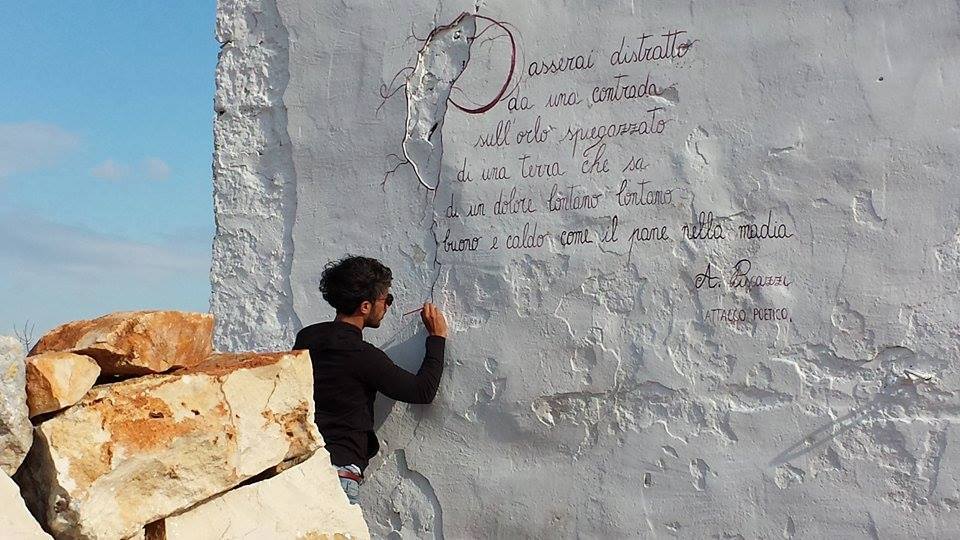 Passerai distratto
da una contrada
sull'orlo spiegazzato
di una terra che sa
di un dolore lontano lontano
buono e caldo come il pane nella madia
A.
ATTACCO POETICO.